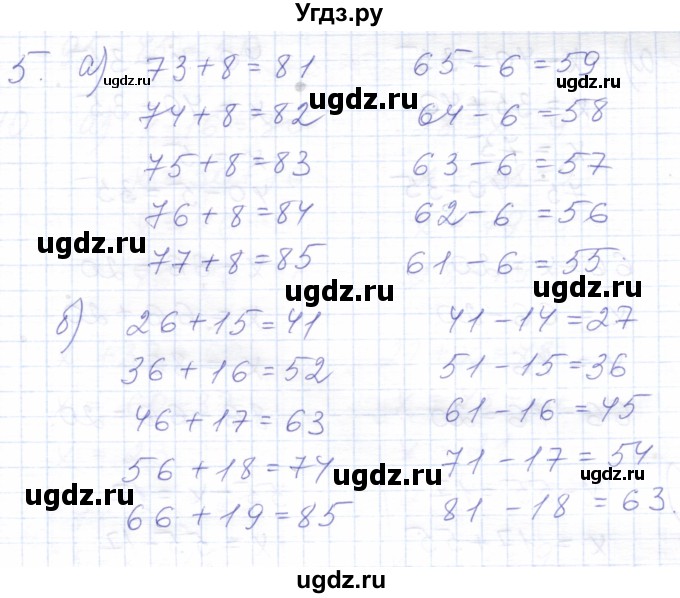 Угдз.ру
5. а) 73 + 8 = 81    65 - 6 = 59
ugdz.ru    ugdz.ru
74 + 8 = 82    64 - 6 = 58
ugdz.ru
75 + 8 = 83    63 - 6 = 57
76 + 8 = 84    62 - 6 = 56
ugdz.ru
77 + 8 = 85    61 - 6 = 55
ugdz.ru    ugdz.ru
б) 26 + 15 = 41    41 - 14 = 27
36 + 16 = 52    51 - 15 = 36
46 + 17 = 63    61 - 16 = 45
56 + 18 = 74    71 - 17 = 54
ugdz.ru    ugdz.ru    ugdz.ru
66 + 19 = 85    81 - 18 = 63.
ugdz.ru